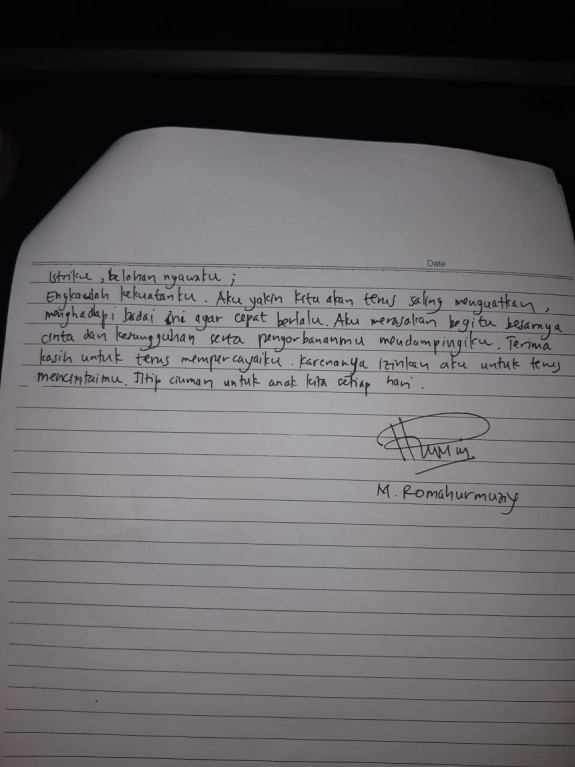 Date
Istriku, belahan nyawaku;
Engkaulah kekuatanku. Aku yakin kita akan terus saling menguatkan,
menghadapi badai ini agar cepat berlalu. Aku merasakan begitu besarnya
cinta dan kesungguhan serta pengorbananmu mendampingiku. Terima
kasih untuk terus mempercayaiku. Karenanya izinkan aku untuk terus
mencintaimu. Titip ciuman untuk anak kita setiap hari.
M. Romahurmuziy